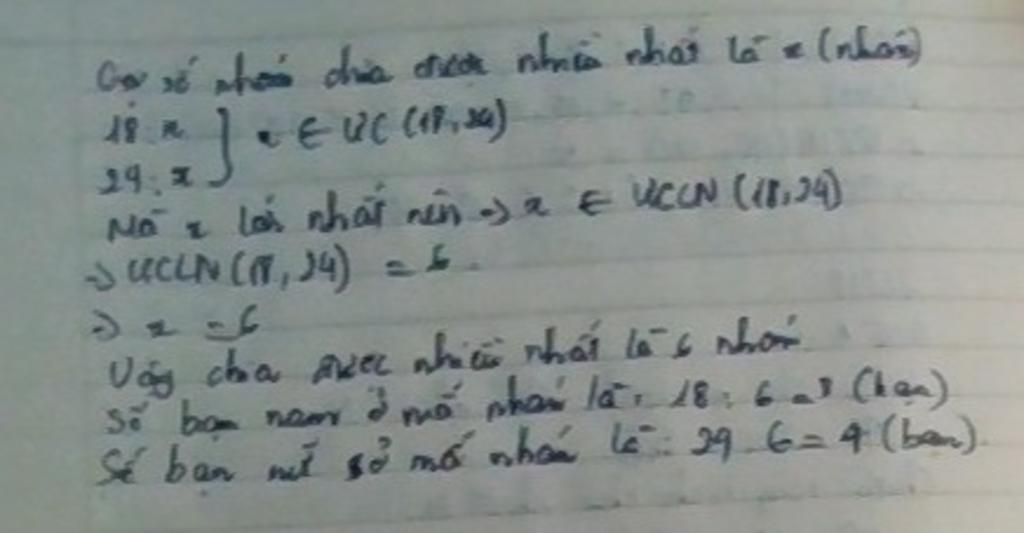 Gọi số nhóm chia được nhiều nhất là x (nhóm)
18 : x } x ∈ ƯC (18, 24)
24 : x
Mà x lớn nhất nên => x ∈ ƯCLN (18, 24)
=> ƯCLN (18, 24) = 6
=> x = 6
Vậy chia được nhiều nhất là 6 nhóm
Số bạn nam ở mỗi nhóm là : 18 : 6 = 3 (bạn)
Số bạn nữ ở mỗi nhóm là : 24 6 = 4 (bạn)